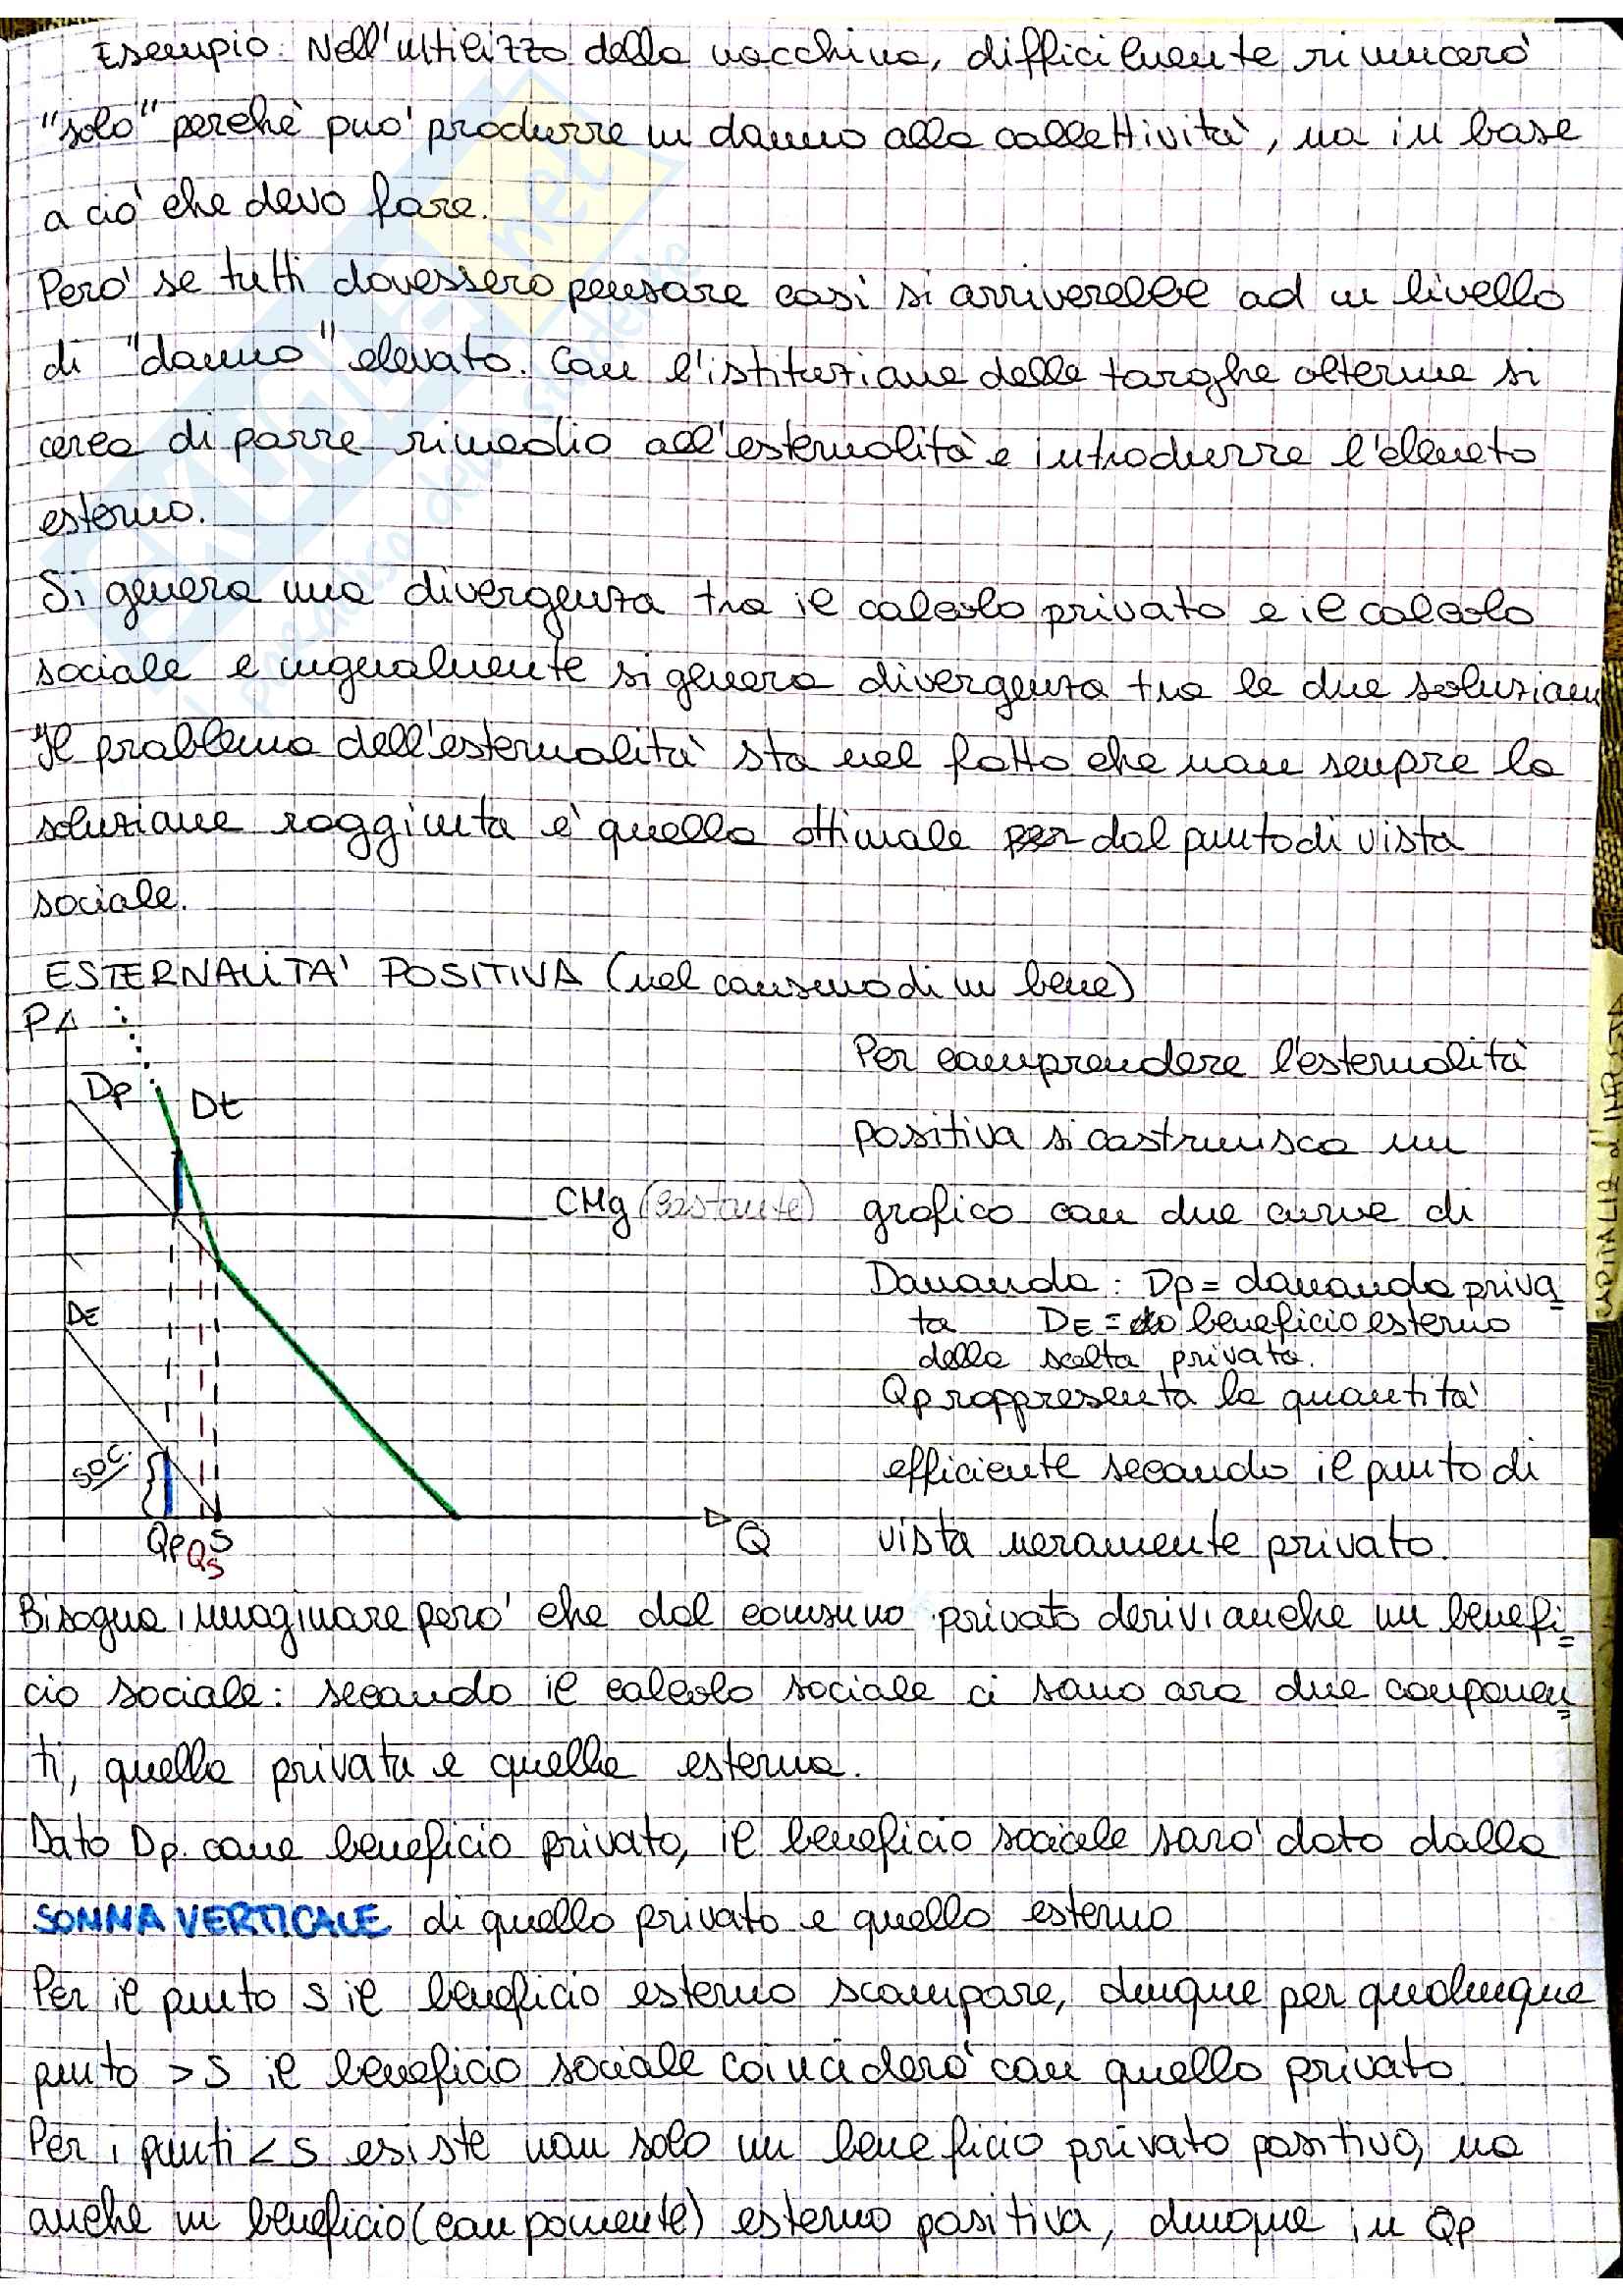 Esempio: Nell'utilizzo della macchina, difficilmente rinuncerò
"solo" perchè può produrre un danno alla collettività, ma in base
a ciò che devo fare.
Però se tutti dovessero pensare così si arriverebbe ad un livello
di "danno" elevato. Con l'istituzione delle targhe alterne si
cerca di porre rimedio all'esternalità e introdurre l'elemento
esterno.
Si genera una divergenza tra il calcolo privato e il calcolo
sociale e ugualmente si genera divergenza tra le due soluzioni
Il problema dell'esternalità sta nel fatto che non sempre la
soluzione raggiunta è quella ottimale per dal punto di vista
sociale.
ESTERNALITA' POSITIVA (nel consumo di un bene)
P
Dp
Dt
CMg (costante)
DE
SOC.
Qp
Qs
S
Q
Per comprendere l'esternalità
positiva si costruisca un
grafico con due curve di
Domanda: Dp = domanda priva
ta DE = beneficio esterno
della scelta privata.
Qp rappresenta la quantità
efficiente secondo il punto di
vista meramente privato.
Bisogna immaginare però che dal consumo privato derivi anche un benefi
cio sociale: secondo il calcolo sociale ci sono ora due componen
ti, quella privata e quella esterna.
Dato Dp come beneficio privato, il beneficio sociale sarà dato dalla
SOMMA VERTICALE di quello privato e quello esterno
Per il punto S il beneficio esterno scompare, dunque per qualunque
punto > S il beneficio sociale coinciderà con quello privato.
Per i punti < S esiste non solo un beneficio privato positivo, ma
anche un beneficio (componente) esterno positiva, dunque in Qp